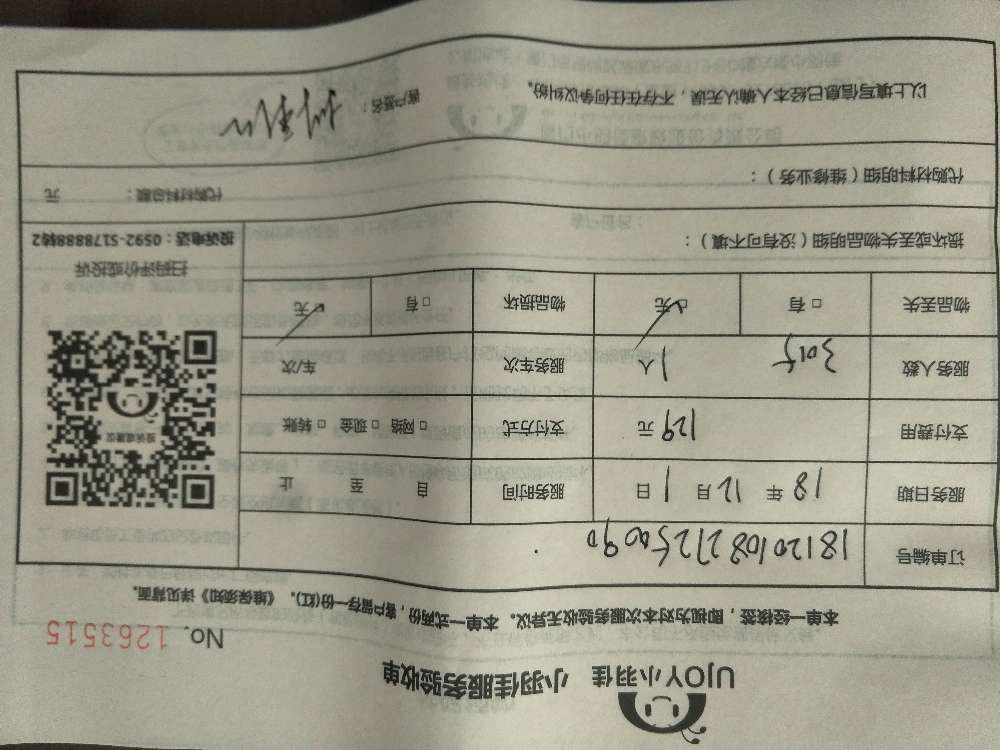 UJOY小羽佳 小羽佳服务验收单
No. 1263515
本单一经接签，即视为对本次服务验收无异议。本单一式两份，客户留存一份(红)。《维保须知》详见背面。
订单编号 18120108272500090
服务日期 18年 12月 1日 服务时间 自 至 止
支付费用 129元 支付方式 □网络 □现金 □转账
服务人数 1人 服务车次 车/次
物品丢失 □有 ☑无 物品损坏 □有 ☑无
损坏或丢失物品明细（没有可不填）：
代购材料明细（维修业务）：
代购材料总额： 元
以上填写信息已经本人确认无误，不存在任何争议纠纷。
客户签名：
投诉建议
扫码评价或投诉
投诉电话：0592-5178888转2